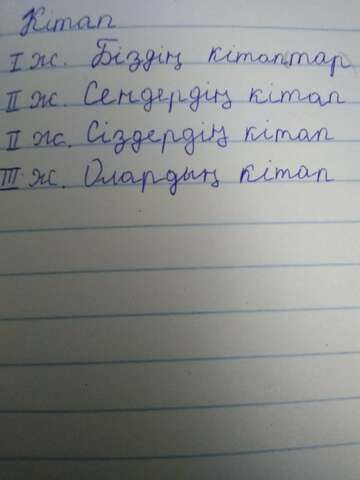 Кітап
I ж. Біздің кітаптар
II ж. Сендердің кітап
II ж. Сіздердің кітап
III ж. Олардың кітап